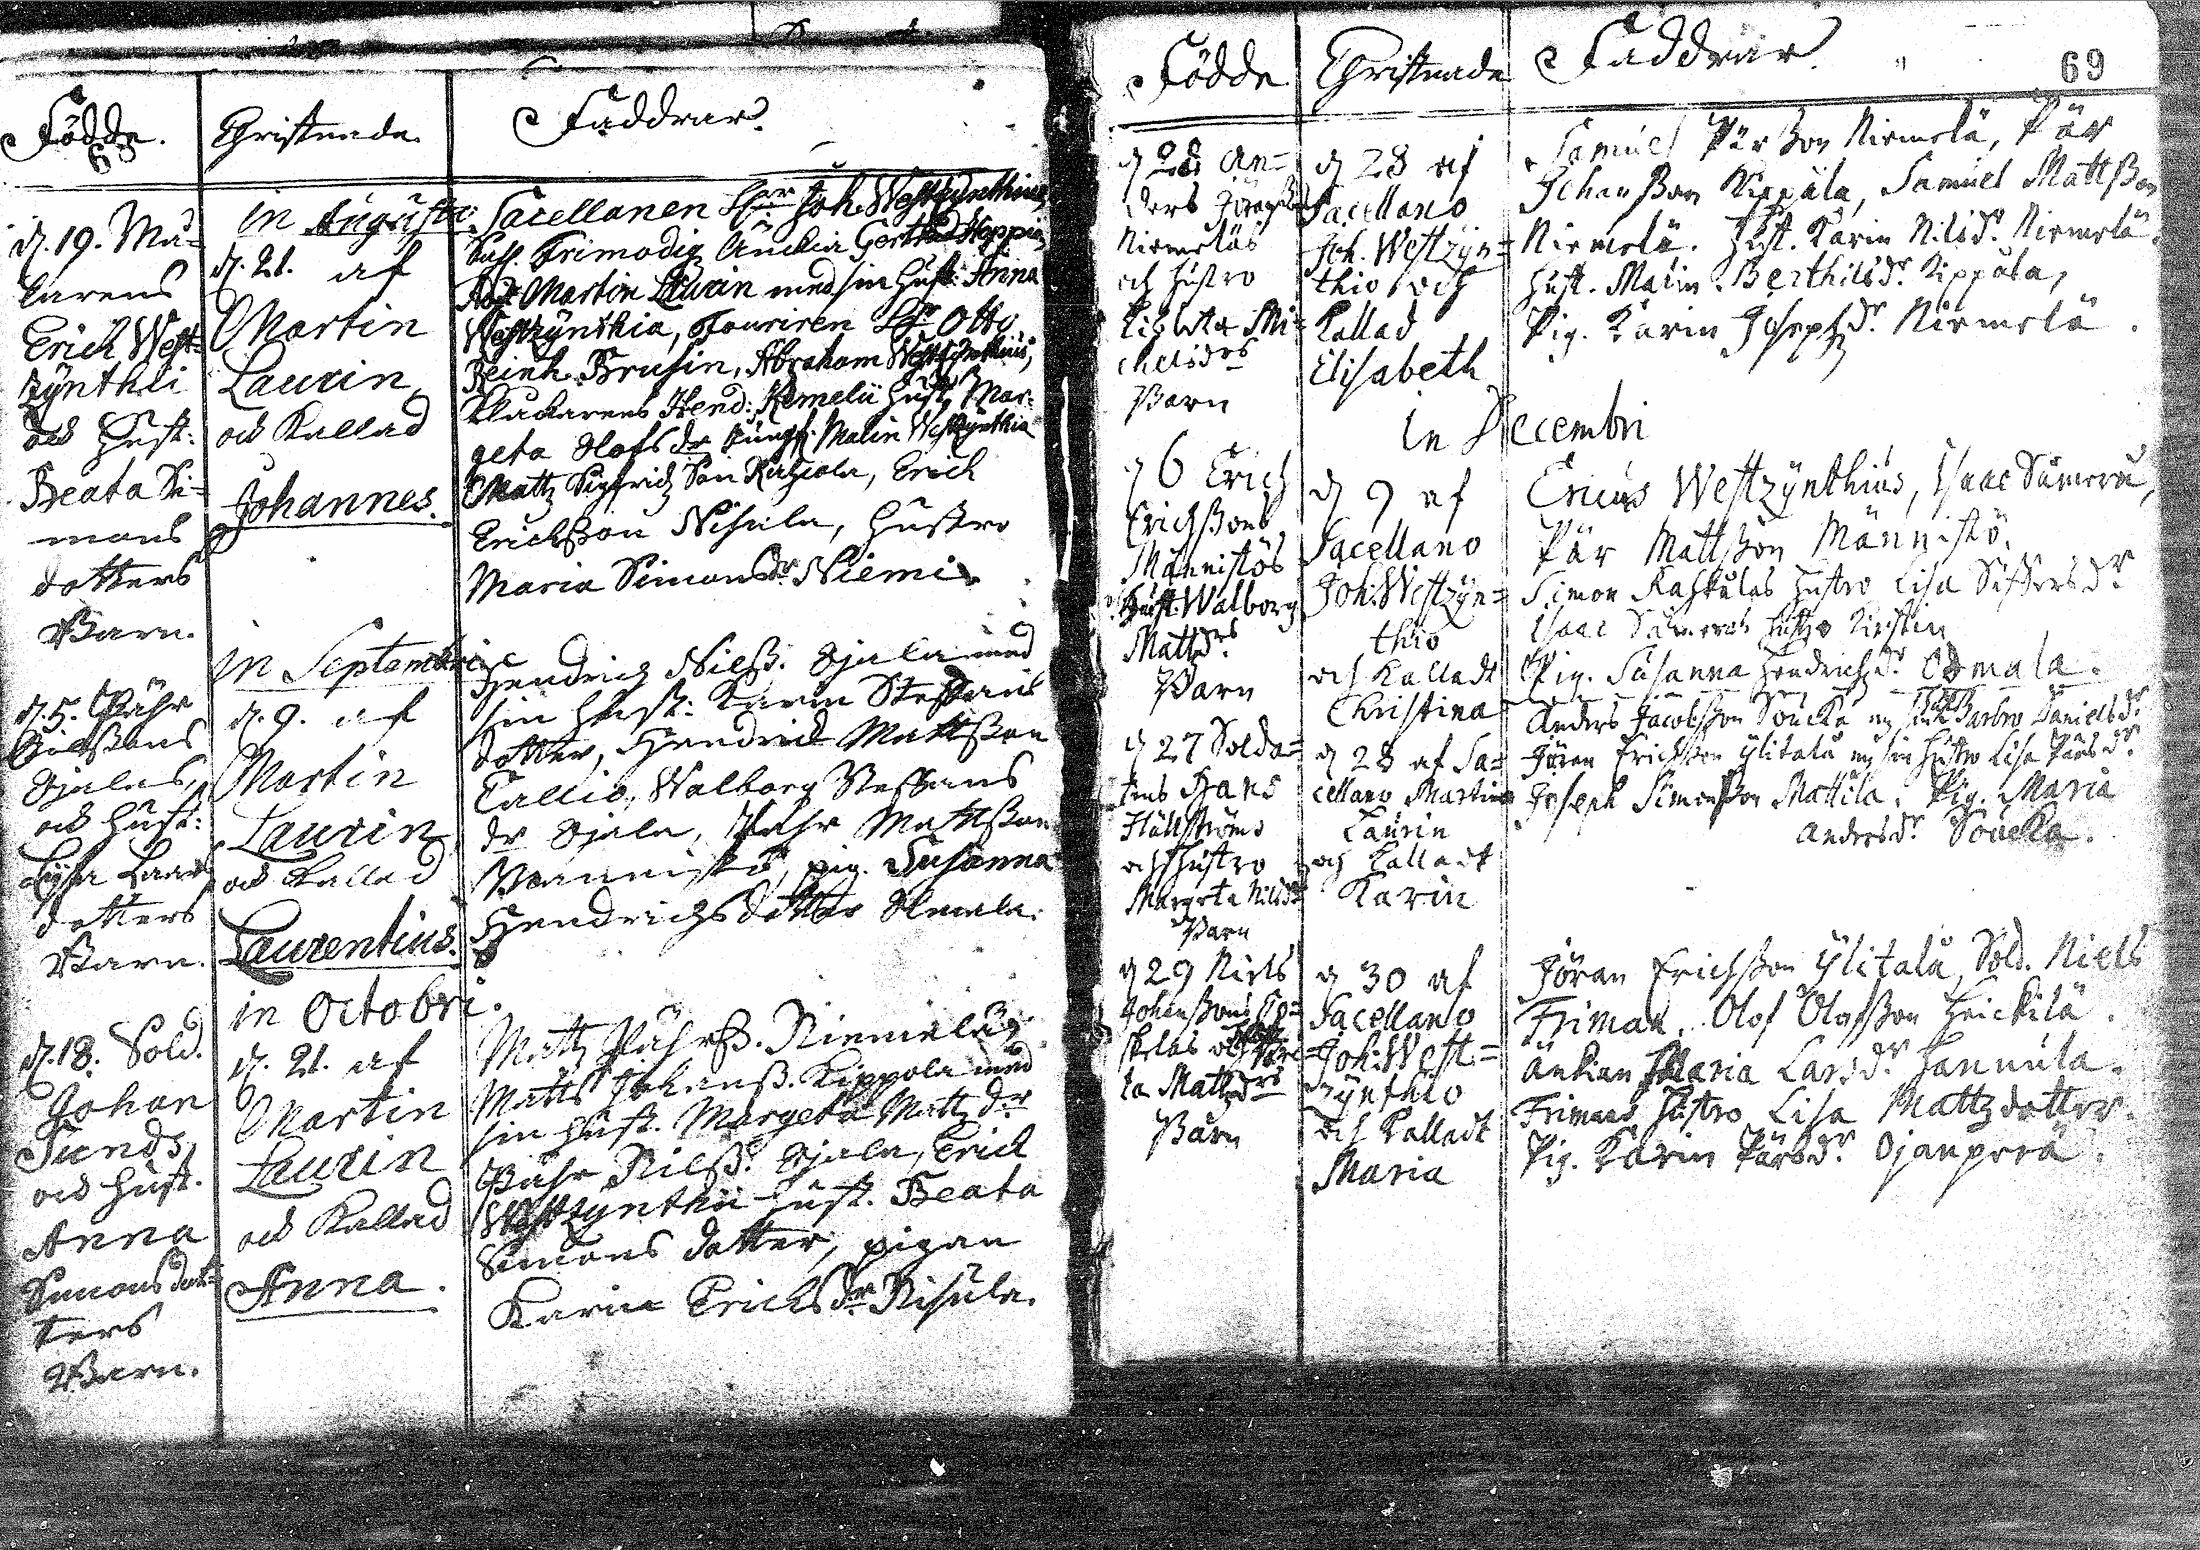 Födde.
68
Christnade.
Faddrar.
in Augusto.
d. 19. Må-
larens
Erich West-
zynthii
och Hust:
Beata Si-
mons
dotters
Barn.
d. 21. af
Martin
Laurin,
och Kallad
Johannes.
Sacellanen Hr Joh. Westzynthius,
Trimodig Änckia Gertrud Hoppia,
Martin Laurin med sin Hust: Anna
Westzynthia, Fouriren Hr Otto
Reinh. Brusin, Abraham Westzynthius,
Klockarens Hend: Kemelii Hust. Mar-
geta Olofs dr Jungf. Malin Westzynthia
Mattz Sigfridz Son, Erich
Erichsson Nisula, Hustro
Maria Simons dr Niemi.
in Septembri
d. 5. Påhr
Nilssons
Ojalas,
och Hust:
Lisa Lars
dotters
Barn.
d. 9. af
Martin
Laurin,
och Kallad
Laurentius.
Hendrich Nilss. Ojala med
sin Hust: Karin Steffans
dotter, Hendrich Mattsson
Tallio, Walborg Steffans
dr Ojala, Påhr Mattsson
Männistö, pig. Susanna
Hendrichsdotter
in Octobri.
d. 18. Sold.
Johan
Sunds
och Hust.
Anna
Simonsdot-
ters
Barn.
d. 21. af
Martin
Laurin
och Kallad
Anna.
Mattz Påhrss. Niemelä,
Matts Johanss. Kippola med
sin Hust. Margeta Mattz dr
Påhr Nilss. Ojala, Erich
Westzynthii Hust. Beata
Simons dotter, pigan
Karin Erichs dr Nisula.
69
Födde
Christnade
Faddrar.
An-
ders
Niemeläs
och Hustro
Mi-
chelsdrs
Barn
d 28 af
Sacellano
Joh. Westzyn-
thio och
Kallad
Elisabeth
Samuel Pärsson Niemelä, Pär
Johansson Kippala, Samuel Mattsson
Niemelä. Hust. Karin Nilsdr. Niemelä
Hust. Malin Berthilsdr. Kippala,
Pig. Karin Josephdr. Niemelä.
in Decembri
d 6 Erich
Erichssons
Männistös
Hust. Walborg
Mattsdrs
Barn
d 9 af
Sacellano
Joh: Westzyn-
thio
och Kalladt
Christina
Ericus Westzynthius, Isaac
Pär Mattsson Männistö.
Simon Hustro Lisa Siffersdr
Isaac Hustro Kirstin
Pig. Susanna Hendrichsdr.
d 27 Solda-
tens Hans
Hällströms
och Hustro
Margeta Nilsdrs
Barn
d 28 af Sa-
cellano Martino
Laurin
och Kalladt
Karin
Anders Jacobsson Soucka Barbro Danielsdr
Jöran Erichsson Ylitalu sin Hustro Lisa Pärsdr
Joseph Simonsson Mattila. Pig. Maria
Andersdr. Soucka.
d 29 Niels
Johanssons
Mattzdrs
Barn
d 30 af
Sacellano
Joh: West-
zynthio
och Kalladt
Maria
Jöran Erichsson Ylitalu, Sold. Niels
Friman. Olof Olofsson Heickilä.
änkian Maria Larsdr. Hannula.
Frimans Hustro Lisa Mattzdotter.
Pig. Karin Pärsdr. Ojanperä.